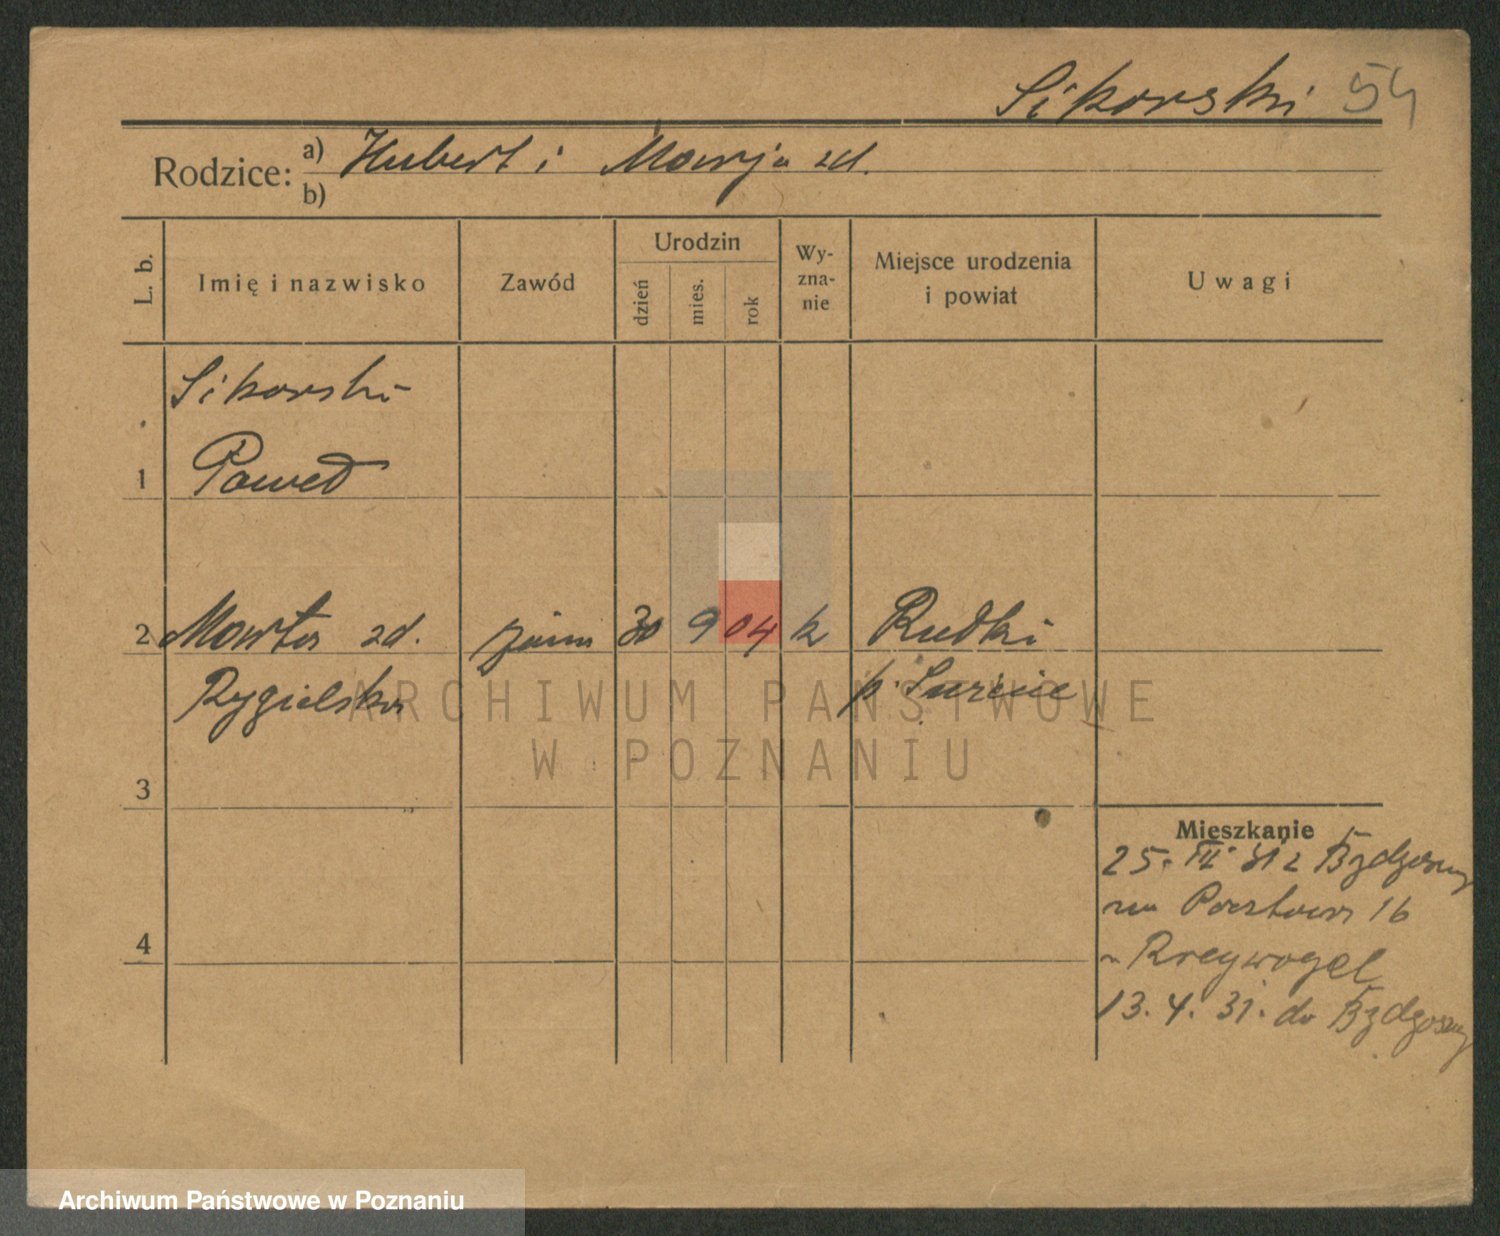 Sikorski 54
Rodzice: a) Hubert i Marja zd.
b)
L. b.
Imię i nazwisko
Zawód
Urodzin
dzień
mies.
rok
Wy-
zna-
nie
Miejsce urodzenia
i powiat
Uwagi
Sikorski
1 Paweł
2 Marta zd. 30 9 04 k Rudki
Rygielska p.
ARCHIWUM PAŃSTWOWE
W POZNANIU
3
Mieszkanie
25. III 31 z Bydgoszczy
na Pocztowa 16
Kreywogel
4
13. 4. 31. do Bydgoszczy
Archiwum Państwowe w Poznaniu